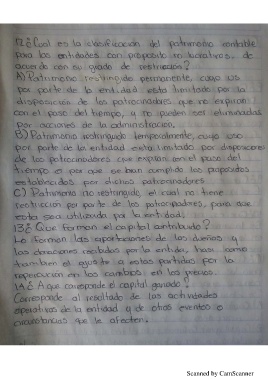 12¿Cual es la clasificación del patrimonio contable
para las entidades con proposito no lucrativos, de
acuerdo con su grado de restricción?
A) Patrimonio restringido permanente, cuyo uso
por parte de la entidad esta limitado por la
disposición de los patrocinadores que no expiran
con el paso del tiempo, y no pueden ser eliminadas
por acciones de la administración.
B) Patrimonio restringido temporalmente, cuyo uso
por parte de la entidad esta limitado por disposiciones
de los patrocinadores que expiran con el paso del
tiempo o por que se han cumplido los propositos
establecidos por dichos patrocinadores
C) Patrimonio no restringido, el cual no tiene
restricción por parte de los patrocinadores, para que
esta sea utilizada por la entidad.
13¿Que forman el capital contribuido?
Lo forman las aportaciones de los dueños y
las donaciones recibidas por la entidad, asi como
tambien el ajuste a estas partidas por la
repercución en los cambios en los precios.
14¿A que corresponde el capital ganado?
Corresponde al resultado de las actividades
operativas de la entidad y de otros eventos o
circunstancias que le afecten.
Scanned by CamScanner